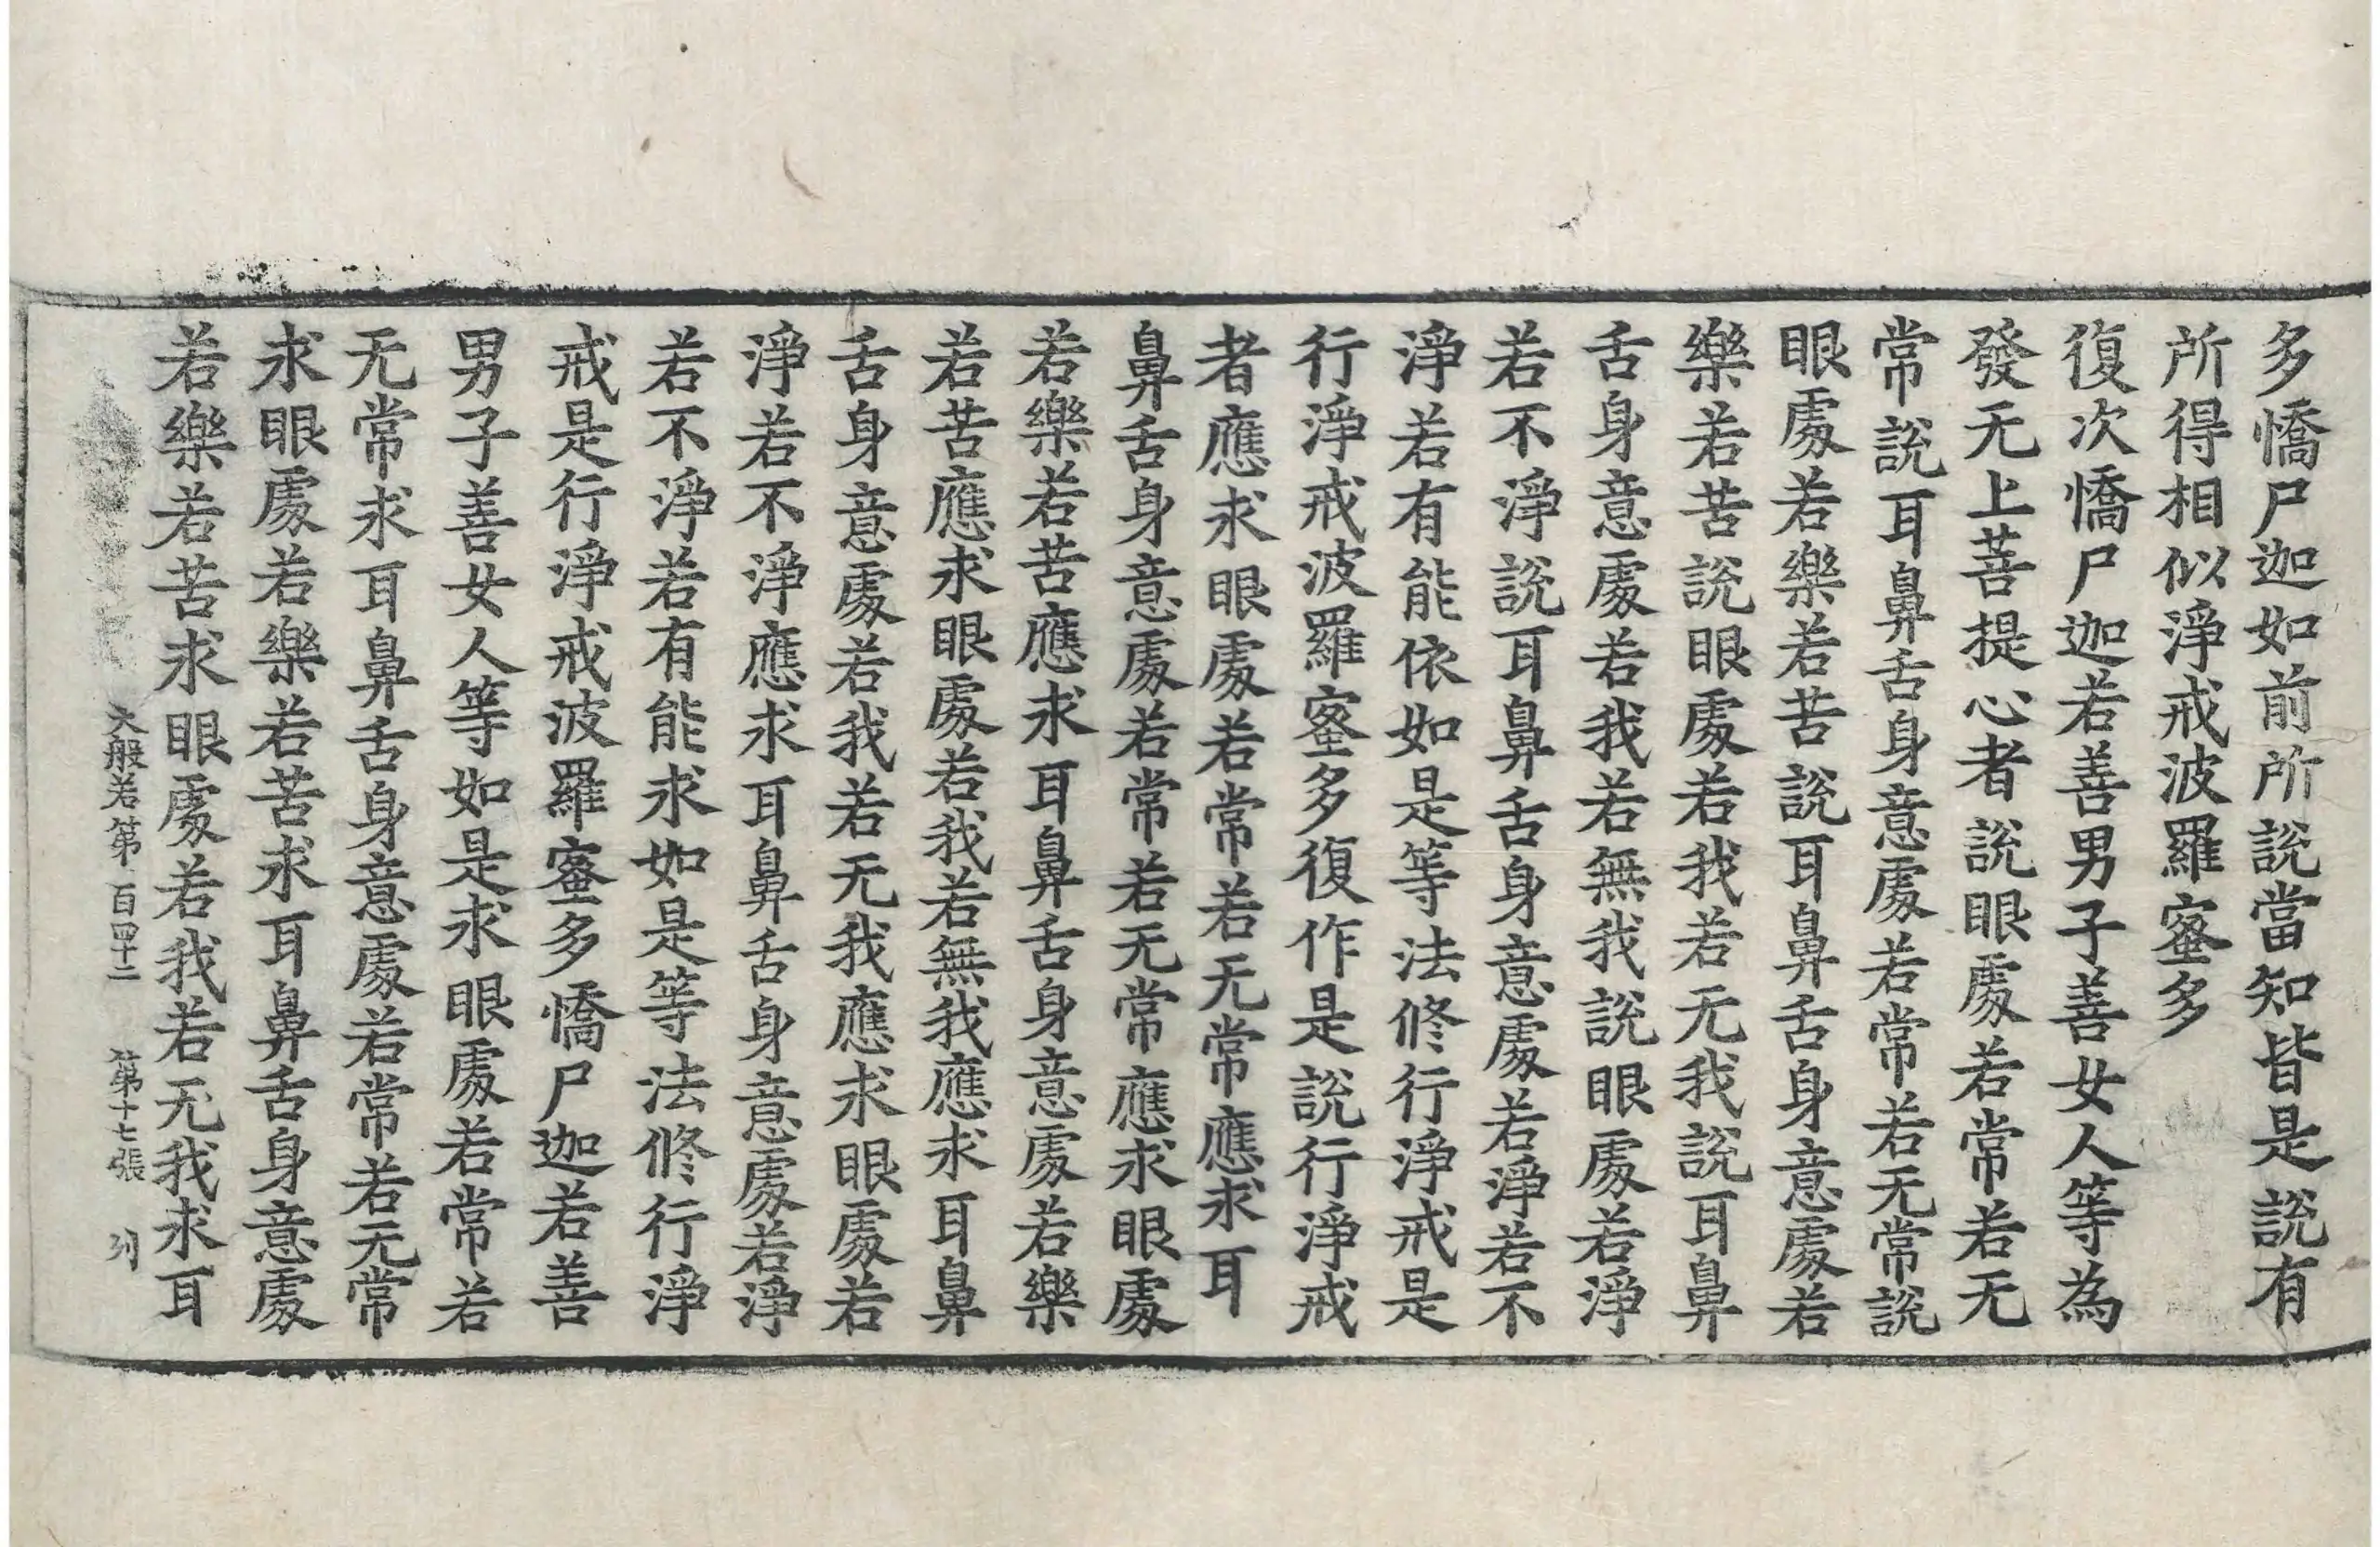 多憍尸迦如前所說當知皆是說有
所得相似淨戒波羅蜜多
復次憍尸迦若善男子善女人等為
發无上菩提心者說眼處若常若无
常說耳鼻舌身意處若常若无常說
眼處若樂若苦說耳鼻舌身意處若
樂若苦說眼處若我若无我說耳鼻
舌身意處若我若無我說眼處若淨
若不淨說耳鼻舌身意處若淨若不
淨若有能依如是等法修行淨戒是
行淨戒波羅蜜多復作是說行淨戒
者應求眼處若常若无常應求耳
鼻舌身意處若常若无常應求眼處
若樂若苦應求耳鼻舌身意處若樂
若苦應求眼處若我若無我應求耳鼻
舌身意處若我若无我應求眼處若
淨若不淨應求耳鼻舌身意處若淨
若不淨若有能求如是等法修行淨
戒是行淨戒波羅蜜多憍尸迦若善
男子善女人等如是求眼處若常若
无常求耳鼻舌身意處若常若无常
求眼處若樂若苦求耳鼻舌身意處
若樂若苦求眼處若我若无我求耳
大般若第一百四十二 第十七張 列